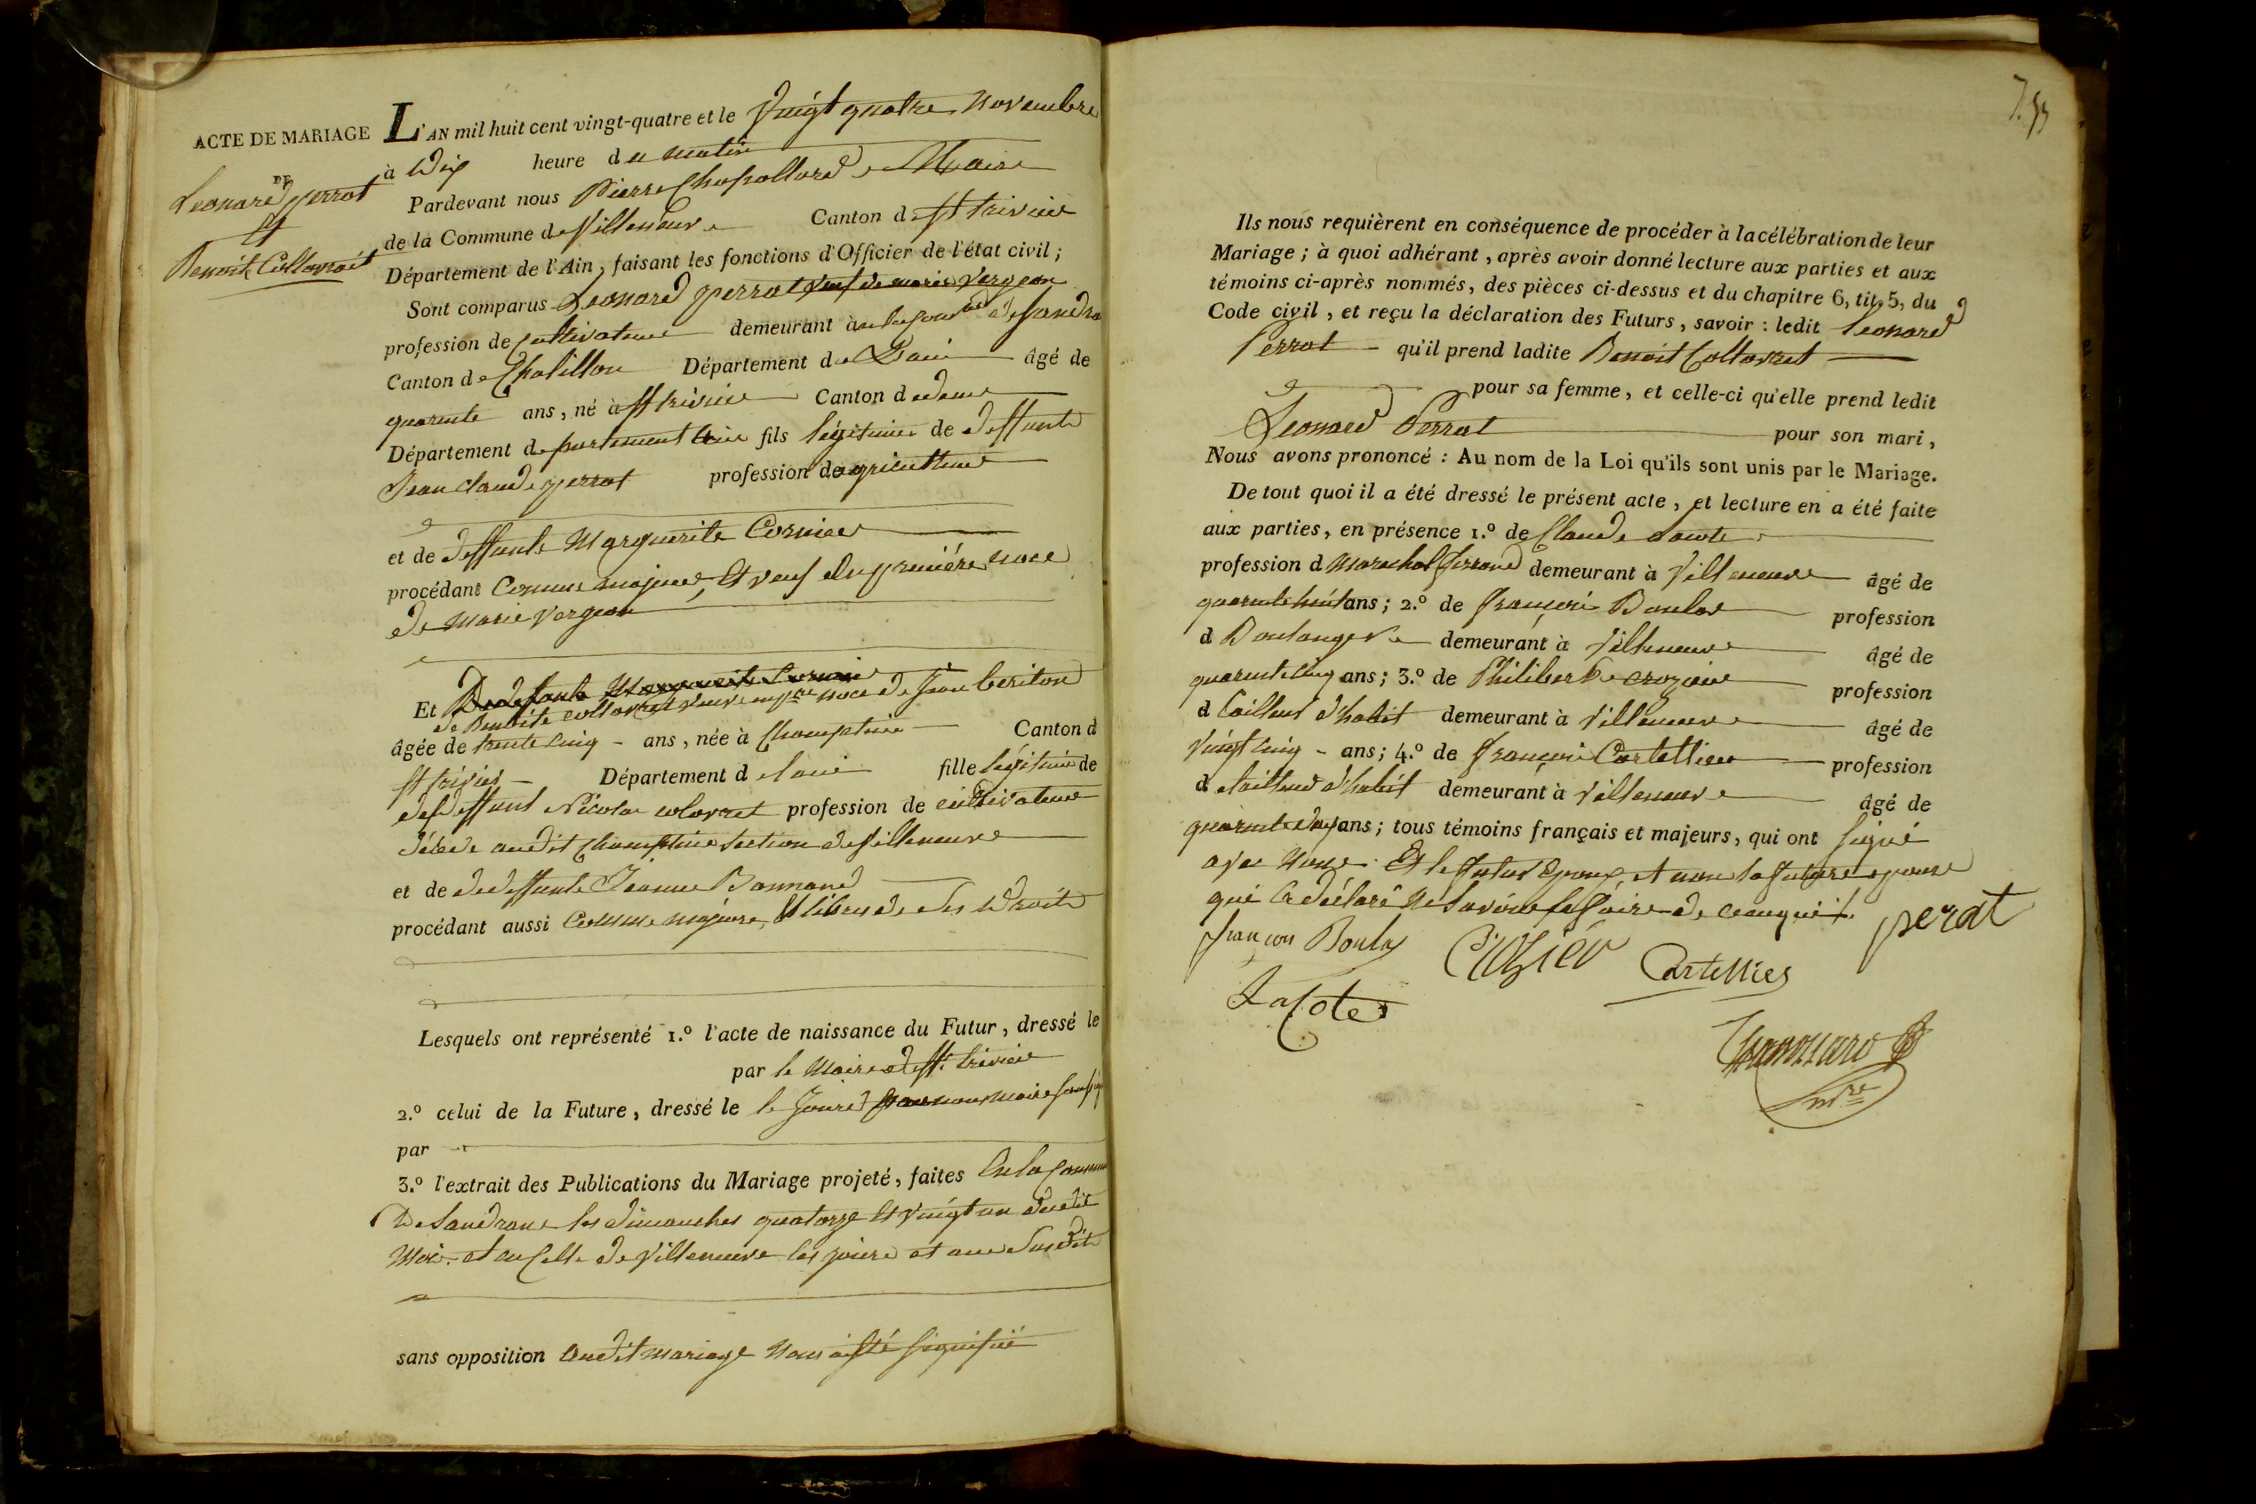 ACTE DE MARIAGE
DE
Leonard perrat
Et
Benoit Collovrait
L'AN mil huit cent vingt-quatre et le vingt quatre Novembre
à Dix heure du matin
Pardevant nous Pierre Maire
de la Commune de Villeneuve Canton de St trivier
Département de l'Ain, faisant les fonctions d'Officier de l'état civil;
Sont comparus Leonard perrat veuf de marie Vergeon
profession de Cultivateur demeurant Sandra
Canton de Chatillon Département de Lain âgé de
quarente ans, né à St trivier Canton
Département fils légitime de deffunt
Jean Claude perrat profession de agriculteur
et de deffunte Marguerite Cornier
procédant Comme majeur, Et veuf En première noce
de Marie Vergeon
Et De defunte Marguerite Cornier
de Benoite collovrat veuve en pre noce de Jean Ceriton
âgée de trente cinq ans, née à Champteins Canton d
St trivier Département d elain fille légitime de
de deffunt Nicolas colovrat profession de cultivateur
décédé audit Champteins section de Villeneuve
et de de deffunte Jeanne Bonnand
procédant aussi Comme majeure, Et libre de ses Droits
Lesquels ont représenté 1.º l'acte de naissance du Futur, dressé le
par le Maire de St. trivier
2.º celui de la Future, dressé le le Jourd par nous maire soussig
par
3.º l'extrait des Publications du Mariage projeté, faites En la Commune
De Sandrans les dimanches quatorze Et vingt un dudit
Mois. et en Celle de Villeneuve les jours et an Susdits
sans opposition audit mariage Nous aité Signifié
Ils nous requièrent en conséquence de procéder à la célébration de leur
Mariage; à quoi adhérant, après avoir donné lecture aux parties et aux
témoins ci-après nommés, des pièces ci-dessus et du chapitre 6, tit. 5, du
Code civil, et reçu la déclaration des Futurs, savoir: ledit Leonard
Perrat qu'il prend ladite Benoit Collovrat
pour sa femme, et celle-ci qu'elle prend ledit
Leonard Perrat pour son mari,
Nous avons prononcé: Au nom de la Loi qu'ils sont unis par le Mariage.
De tout quoi il a été dressé le présent acte, et lecture en a été faite
aux parties, en présence 1.º de Claude Lacote
profession d Marechal ferrand demeurant à Villeneuve âgé de
quarente huit ans; 2.º de françois Boulas profession
d Boulanger demeurant à Villeneuve âgé de
quarente cinq ans; 3.º de Philibert crozier profession
d tailleur d'habit demeurant à Villeneuve âgé de
Vingt cinq ans; 4.º de françois Cartellier profession
d etailleur d'habit demeurant à Villeneuve âgé de
quarente ans; tous témoins français et majeurs, qui ont signé
avec Nous. Et le futur Epoux et non la future epouse
qui a déclaré ne savoir le faire de ce enquit.
perat
françois Boulas
Crozier
Cartellier
LaCote
mre